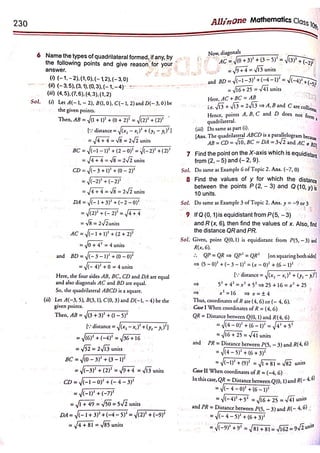 230
All/none Mathematics Class 10th
6 Name the types of quadrilateral formed, if any, by
the following points and give reason for your
answer.
(i) (−1, −2), (1, 0), (−1, 2), (−3, 0)
(ii) (−3, 5), (3, 1), (0, 3), (−1, −4)
(iii) (4, 5), (7, 6), (4, 3), (1, 2)
Sol. (i) Let A(−1, −2), B(1, 0), C(−1, 2) and D(−3, 0) be
the given points.
Then, AB = √(1 + 1)² + (0 + 2)² = √(2)² + (2)²
[∵ distance = √(x₂ − x₁)² + (y₂ − y₁)²]
= √4 + 4 = √8 = 2√2 units
BC = √(−1 − 1)² + (2 − 0)² = √(−2)² + (2)²
= √4 + 4 = √8 = 2√2 units
CD = √(−3 + 1)² + (0 − 2)²
= √(−2)² + (−2)²
= √4 + 4 = √8 = 2√2 units
DA = √(−1 + 3)² + (−2 − 0)²
= √(2)² + (−2)² = √4 + 4
= √8 = 2√2 units
AC = √(−1 + 1)² + (2 + 2)²
= √0 + 4² = 4 units
and BD = √(−3 − 1)² + (0 − 0)²
= √(−4)² + 0 = 4 units
Here, the four sides AB, BC, CD and DA are equal
and also diagonals AC and BD are equal.
So, the quadrilateral ABCD is a square.
(ii) Let A(−3, 5), B(3, 1), C(0, 3) and D(−1, −4) be the
given points.
Then, AB = √(3 + 3)² + (1 − 5)²
[∵ distance = √(x₂ − x₁)² + (y₂ − y₁)²]
= √(6)² + (−4)² = √36 + 16
= √52 = 2√13 units
BC = √(0 − 3)² + (3 − 1)²
= √(−3)² + (2)² = √9 + 4 = √13 units
CD = √(−1 − 0)² + (−4 − 3)²
= √(−1)² + (−7)²
= √1 + 49 = √50 = 5√2 units
DA = √(−1 + 3)² + (−4 − 5)² = √(2)² + (−9)²
= √4 + 81 = √85 units
Now, diagonals
AC = √(0 + 3)² + (3 − 5)² = √(3)² + (−2)²
= √9 + 4 = √13 units
and BD = √(−1 − 3)² + (−4 − 1)² = √(−4)² + (−5)²
= √16 + 25 = √41 units
Here, AC + BC = AB
i.e. √13 + √13 = 2√13 ⇒ A, B and C are collinear
Hence, points A, B, C and D does not form a
quadrilateral.
(iii) Do same as part (i).
[Ans. The quadrilateral ABCD is a parallelogram because
AB = CD = √10, BC = DA = 3√2 and AC ≠ BD]
7 Find the point on the X-axis which is equidistant
from (2, −5) and (−2, 9).
Sol. Do same as Example 6 of Topic 2. Ans. (−7, 0)
8 Find the values of y for which the distance
between the points P (2, −3) and Q (10, y) is
10 units.
Sol. Do same as Example 3 of Topic 2. Ans. y = −9 or 3
9 If Q (0, 1) is equidistant from P (5, −3)
and R (x, 6), then find the values of x. Also, find
the distance QR and PR.
Sol. Given, point Q(0, 1) is equidistant from P(5, −3) and
R(x, 6).
∴ QP = QR ⇒ QP² = QR² [on squaring both sides]
⇒ (5 − 0)² + (−3 − 1)² = (x − 0)² + (6 − 1)²
[∵ distance = √(x₂ − x₁)² + (y₂ − y₁)²]
⇒ 5² + 4² = x² + 5² ⇒ 25 + 16 = x² + 25
⇒ x² = 16 ⇒ x = ± 4
Thus, coordinates of R are (4, 6) or (−4, 6).
Case I When coordinates of R = (4, 6)
QR = Distance between Q(0, 1) and R(4, 6)
= √(4 − 0)² + (6 − 1)² = √4² + 5²
= √16 + 25 = √41 units
and PR = Distance between P(5, −3) and R(4, 6)
= √(4 − 5)² + (6 + 3)²
= √(−1)² + (9)² = √1 + 81 = √82 units
Case II When coordinates of R = (−4, 6)
In this case, QR = Distance between Q(0, 1) and R(−4, 6)
= √(−4 − 0)² + (6 − 1)²
= √(−4)² + 5² = √16 + 25 = √41 units
and PR = Distance between P(5, −3) and R(−4, 6)
= √(−4 − 5)² + (6 + 3)²
= √(−9)² + 9² = √81 + 81 = √162 = 9√2 units